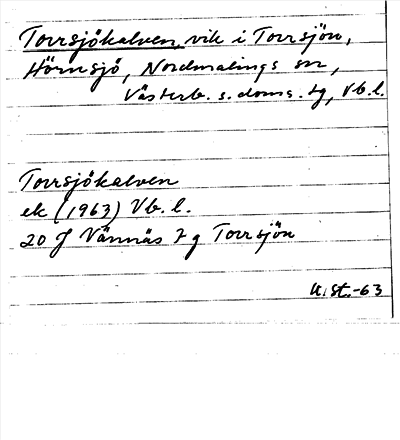 Torrsjökalven, vik i Torrsjön,
Hörnsjö, Nordmalings sn,
Västerb. s. doms. tg, Vb.l.
Torrsjökalven
ek (1963) Vb.l.
20 J Vännäs 7 g Torrsjön
U.St.-63